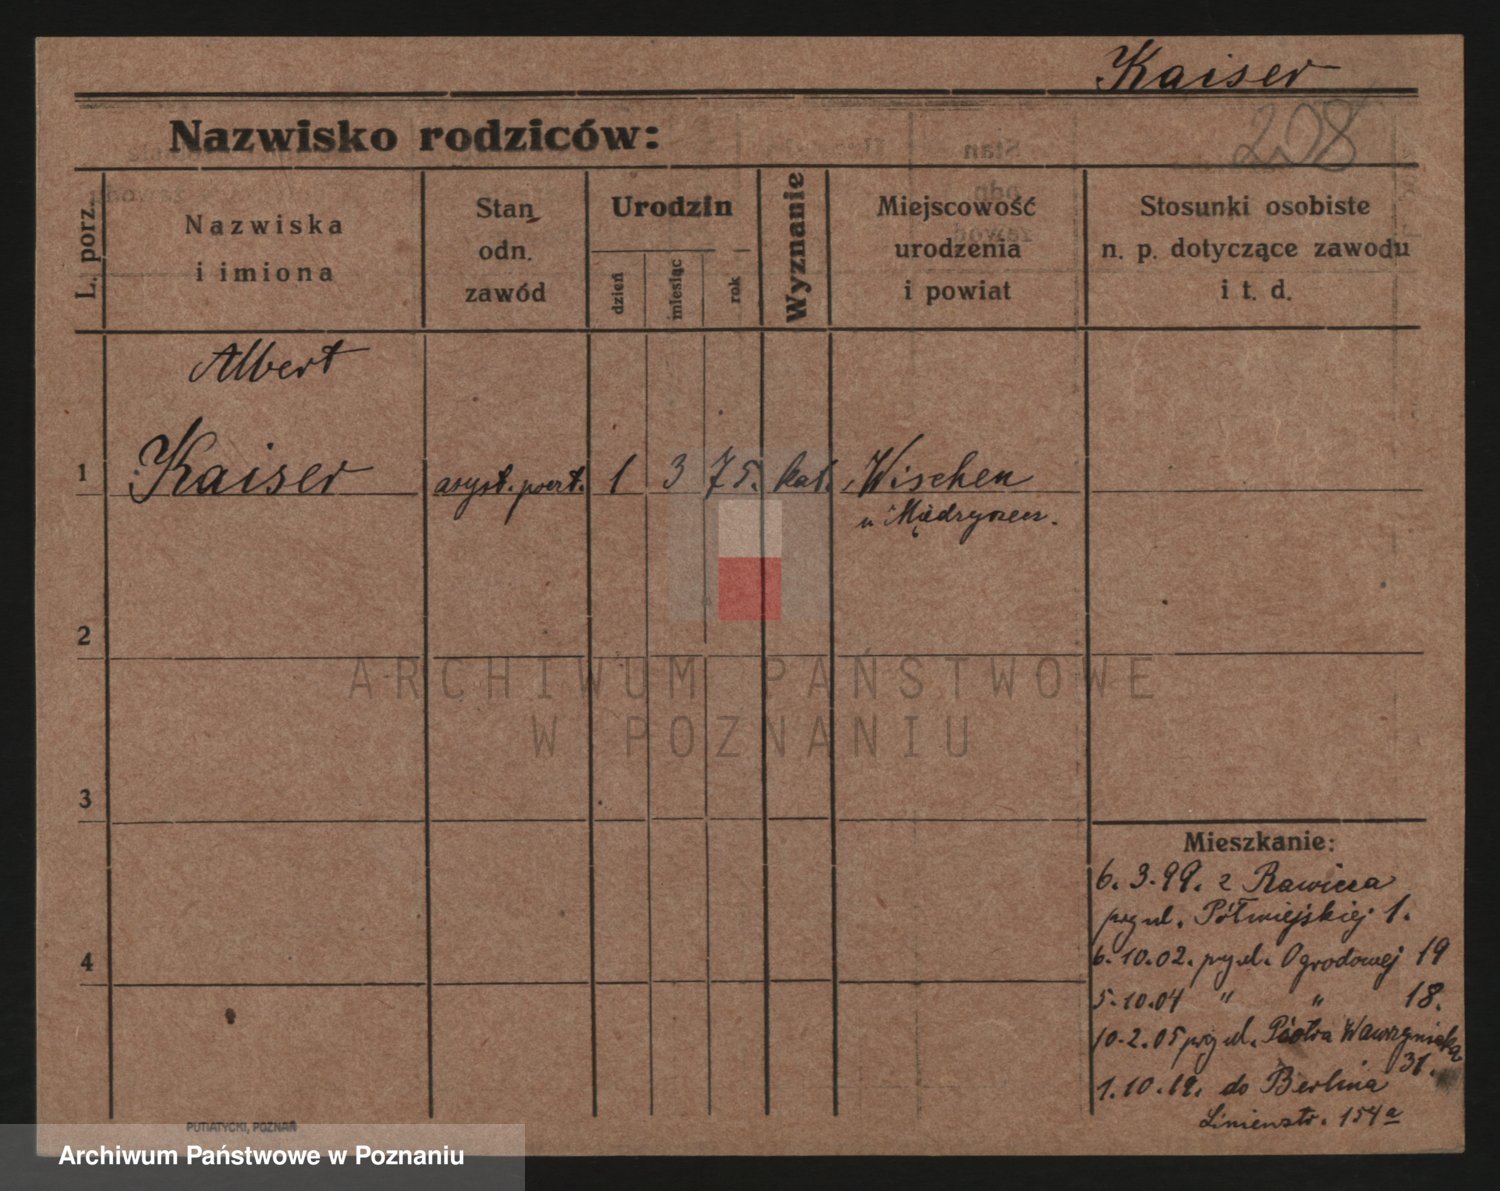 Kaiser
208
Nazwisko rodziców:
L. porz.
Nazwiska
i imiona
Stan
odn.
zawód
Urodzin
dzień
miesiąc
rok
Wyznanie
Miejscowość
urodzenia
i powiat
Stosunki osobiste
n. p. dotyczące zawodu
i t. d.
Albert
1 Kaiser asyst. poczt. 1 3 75. kat. Wischen
Międzyrzecz.
2
3
4
ARCHIWUM PAŃSTWOWE
W POZNANIU
Mieszkanie:
6. 3. 99. z Rawicza
przy ul. Półwiejskiej 1.
6. 10. 02. przy ul. Ogrodowej 19
5. 10. 04 " " 18.
10. 2. 05 przy ul. Piotra Wawrzyniaka
31.
1. 10. 19. do Berlina
Linienstr. 154a
PUTIATYCKI, POZNAŃ
Archiwum Państwowe w Poznaniu